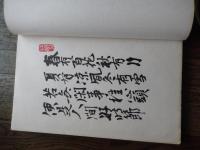 春有百花秋有月
夏有涼風冬有雪
若無閑事挂心頭
便是人間好時節